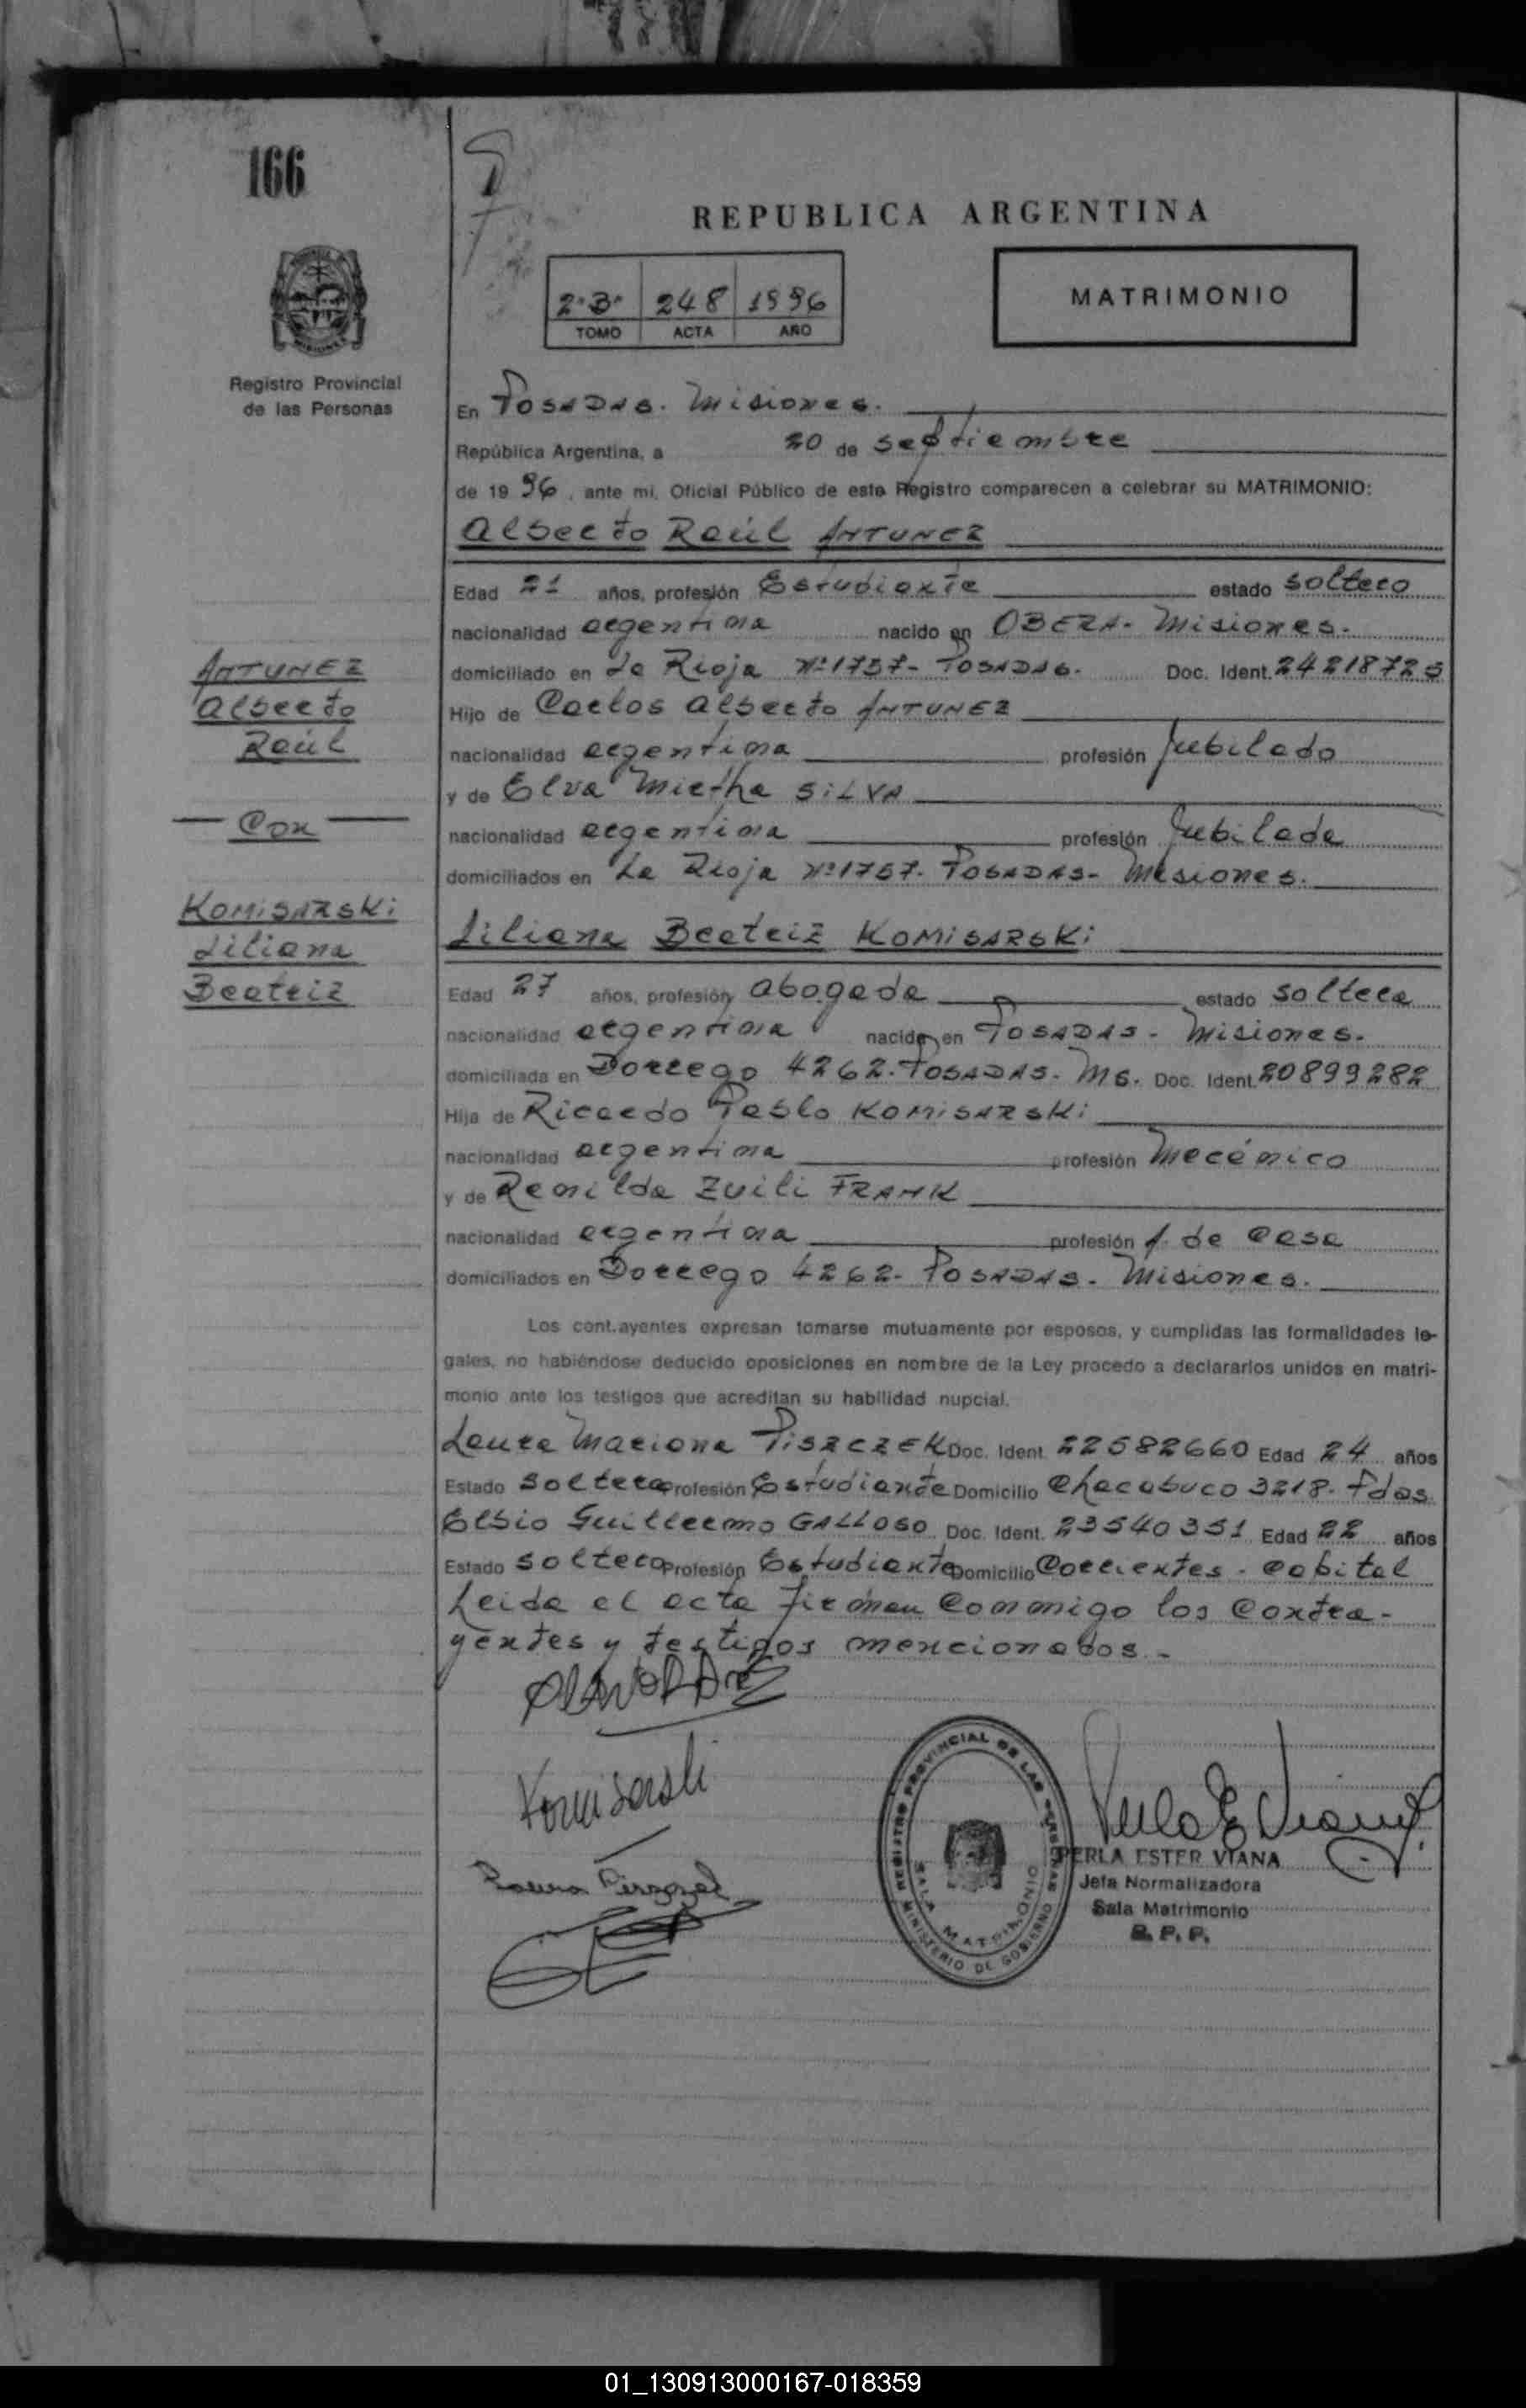 166
REPUBLICA ARGENTINA
2º B° 248 1996
TOMO ACTA AÑO
MATRIMONIO
Registro Provincial
de las Personas
En POSADAS. Misiones.
República Argentina, a 20 de septiembre
de 1996, ante mi, Oficial Público de este Registro comparecen a celebrar su MATRIMONIO:
Alberto Raúl ANTUNEZ
Edad 21 años, profesión Estudiante estado soltero
nacionalidad argentina nacido en OBERA. Misiones.
domiciliado en La Rioja Nº 1757- POSADAS. Doc. Ident. 24218725
Hijo de Carlos Alberto ANTUNEZ
nacionalidad argentina profesión Jubilado
y de Elva Mirtha SILVA
nacionalidad argentina profesión Jubilada
domiciliados en La Rioja Nº 1757. POSADAS- Misiones.
ANTUNEZ
Alberto
Raúl
Con
KOMISARSKI
Liliana
Beatriz
Liliana Beatriz KOMISARSKI
Edad 27 años, profesión abogada estado soltera
nacionalidad argentina nacida en POSADAS - Misiones.
domiciliada en Dorrego 4262. POSADAS. Ms. Doc. Ident. 20899282
Hija de Ricardo Pablo KOMISARSKI
nacionalidad argentina profesión Mecánico
y de Renilda Zuili FRANK
nacionalidad argentina profesión A. de casa
domiciliados en Dorrego 4262- POSADAS. Misiones.
Los cont.ayentes expresan tomarse mutuamente por esposos, y cumplidas las formalidades le-
gales, no habiéndose deducido oposiciones en nombre de la Ley procedo a declararlos unidos en matri-
monio ante los testigos que acreditan su habilidad nupcial.
Laura Mariana PISZCZEK Doc. Ident. 22582660 Edad 24 años
Estado soltera Profesión Estudiante Domicilio Chacabuco 3218. Pdas.
Elbio Guillermo GALLOSO Doc. Ident. 23540351 Edad 22 años
Estado soltero Profesión Estudiante Domicilio Corrientes - Capital
Leida el acta firman conmigo los contra-
yentes y testigos mencionados.-
Komisarski
REGISTRO PROVINCIAL DE LAS PERSONAS
SALA MATRIMONIO
MINISTERIO DE GOBIERNO
PERLA ESTER VIANA
Jefa Normalizadora
Sala Matrimonio
R. P. P.
01_130913000167-018359